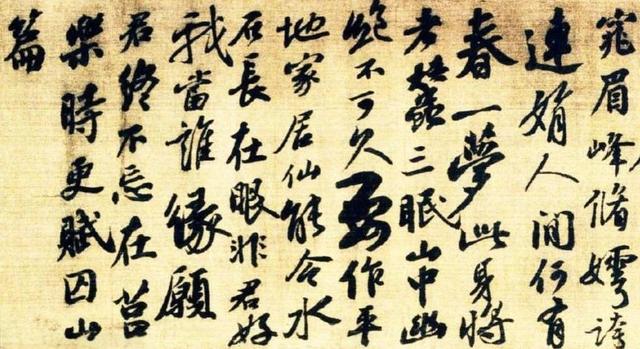 窕眉峰脩嫮誇
連娟人間何有
春一夢此身將
老蠶三眠山中幽
絶不可久要作平
地家居仙能令水
石長在眼非君好
我當誰緣願
君終不忘在莒
樂時更賦囚山
篇